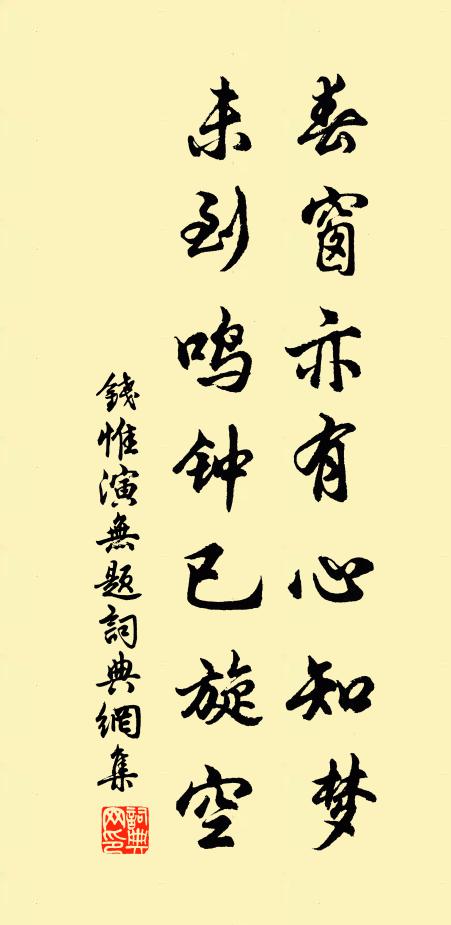 春窗亦有心知梦
未到鸣钟已旋空
錢惟演無题詞典網集
詞典网印